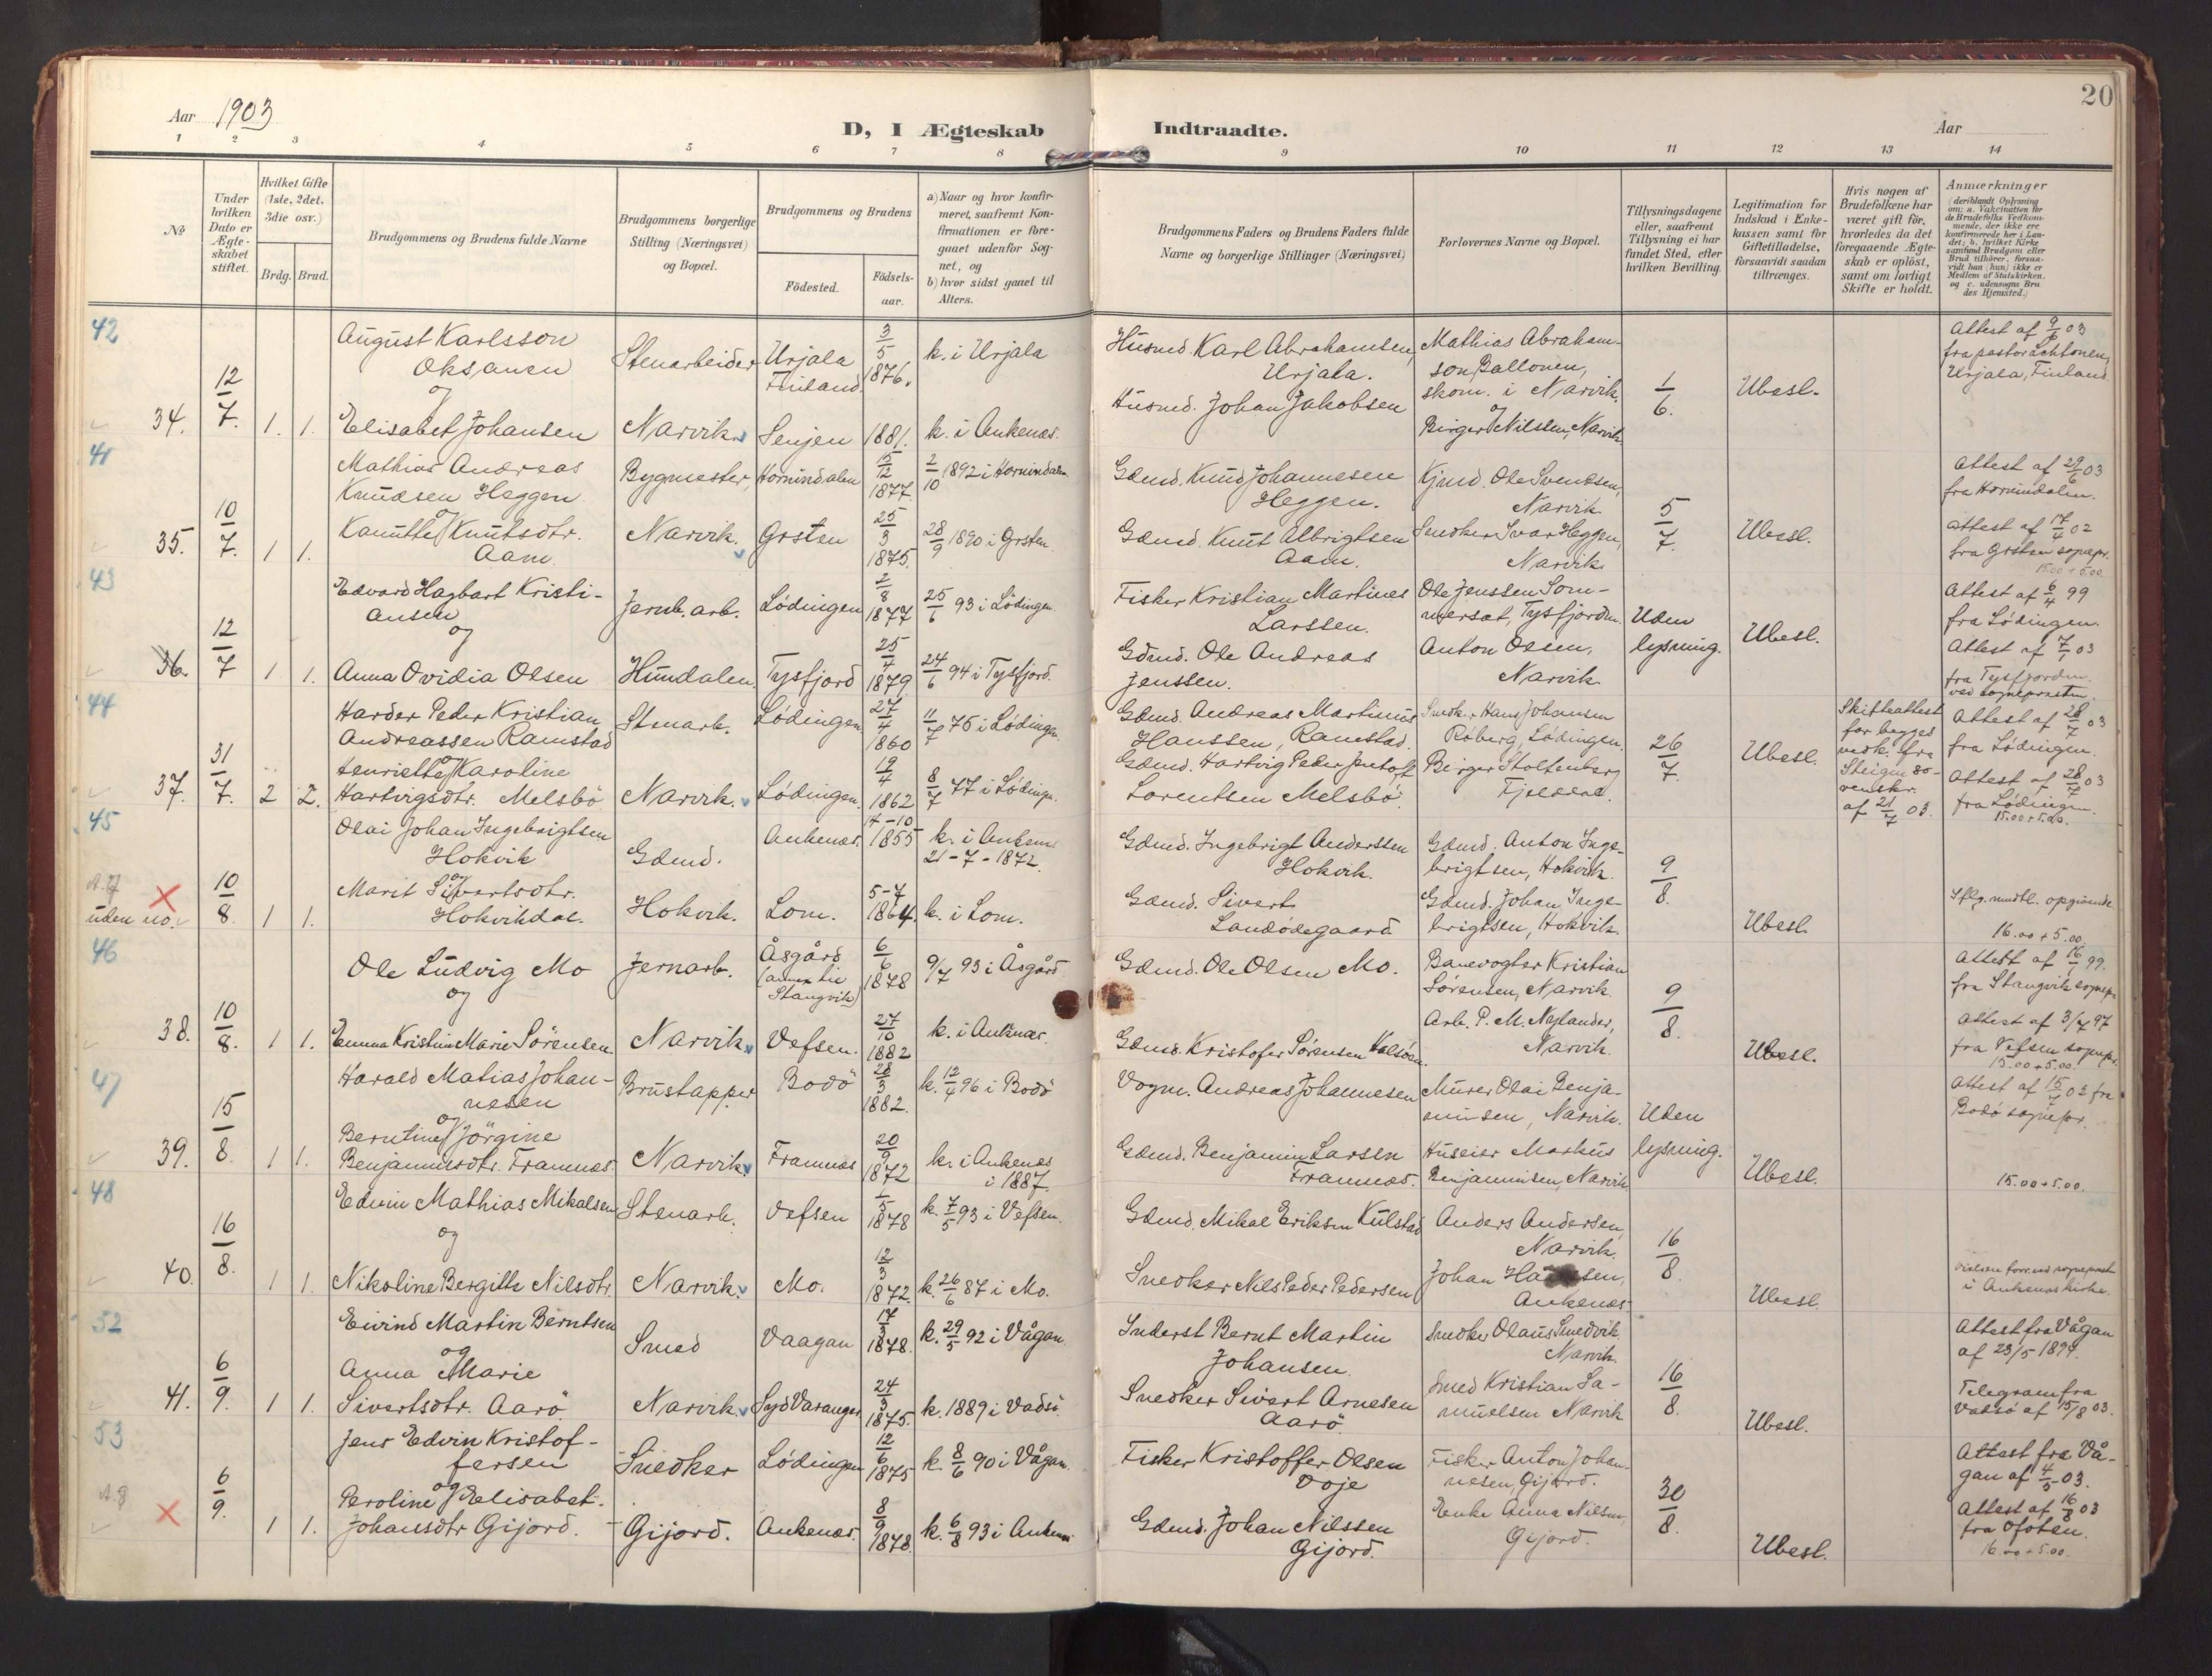 20
Aar 1903
D, I Ægteskab Indtraadte.
Aar
1 2 3 4 5 6 7 8 9 10 11 12 13 14
No
Under hvilken Dato er Ægteskabet stiftet.
Hvilket Gifte (1ste, 2det, 3die osv.)
Brdg. Brud.
Brudgommens og Brudens fulde Navne
Brudgommens borgerlige Stilling (Næringsvei) og Bopæl.
Brudgommens og Brudens
Födested.
Födsels-aar.
a) Naar og hvor konfirmeret, saafremt Konfirmationen er foregaaet udenfor Sognet, og
b) hvor sidst gaaet til Alters.
Brudgommens Faders og Brudens Faders fulde Navne og borgerlige Stillinger (Næringsvei)
Forlovernes Navne og Bopæl.
Tillysningsdagene eller, saafremt Tillysning ei har fundet Sted, efter hvilken Bevilling.
Legitimation for Indskud i Enkekassen samt for Giftetilladelse, forsaavidt saadan tiltrænges.
Hvis nogen af Brudefolkene har været gift för, hvorledes da det foregaaende Ægteskab er oplöst, samt om lovligt Skifte er holdt.
Anmærkninger (deriblandt Oplysning om: a. Vakcination for de Brudefolks Vedkommende, der ikke ere konfirmerede her i Landet; b. hvilket Kirkesamfund Brudgom eller Brud tilhörer, forsaavidt han (hun) ikke er Medlem af Statskirken, og c. udensogns Brudes Hjemsted.)
42
34. 12/7. 1. 1.
August Karlsson
Oksanen
og
Elisabet Johansen
Stenarbeider
Narvik.
Urjala
Finland.
Senjen
3/5 1876.
1881.
k. i Urjala
k. i Ankenæs.
Husmd. Karl Abrahamsen,
Urjala.
Husmd. Johan Jakobsen
Mathias Abraham-
son Ballonen,
skom. i Narvik.
og
Birger Nilsen, Narvik
1/6.
Ubesl.
Attest af 9/6 03
fra pastor Lehtonen,
Urjala, Finland.
41
35. 10/7. 1 1.
Mathias Andreas
Knudsen Heggen
og
Kanutte Knutsdtr.
Aam
Bygmester,
Narvik.
Hornindalen
Grsten
15/12 1877.
25/3 1875.
2/10 1892 i Hornindalen
28/9 1890 i Grsten.
Gdmd. Knud Johannesen
Heggen.
Gdmd. Knut Albrigtsen
Aam.
Kjmd. Ole Sventsen,
Narvik
Snedker Ivar Heggen,
Narvik
5/7.
Ubesl.
Attest af 29/6 03
fra Hornindalen.
Attest af 17/4 02
fra Grsten sognepr.
15.00 + 5.00
43
36. 12/7 1 1.
Edvard Hagbart Kristi-
ansen
og
Anna Ovidia Olsen
Jernb. arb.
Hundalen.
Lödingen
Tysfjord
2/8 1877
25/7 1879.
25/6 93 i Lödingen.
24/6 94 i Tysfjord.
Fisker Kristian Martines
Larssen.
Gdmd. Ole Andreas
Jenssen.
Ole Jenssen Som-
mersæt, Tysfjorden
Anton Olsen,
Narvik
Uden
lysning.
Ubesl.
Attest af 6/4 99
fra Lödingen.
Attest af 7/1 03
fra Tysfjorden
ved sognepresten.
44
37. 31/7. 2 2.
Harder Peder Kristian
Andreassen Ramstad
og
Henriette Karoline
Hartvigsdtr. Melsbö
Stenarb.
Narvik.
Lödingen
Lödingen.
27/4 1860
12/4 1862
11/7 75 i Lödingen.
8/7 77 i Lödingen.
Gdmd. Andreas Martinus
Hanssen, Ramstad.
Gdmd. Hartvig Peder Jentoft
Lorentsen Melsbö.
Smedk. Hans Johansen
Röberg, Lödingen.
Birger Stoltenberg
26/7.
Ubesl.
Skifteattest
for begges
vedk. fra
Steigen so-
renskr.
af 21/7 03.
Attest af 28/7 03
fra Lödingen.
Attest af 28/7 03
fra Lödingen.
15.00+5.00.
45
A.7
uden no. 10/8. 1 1.
Olai Johan Ingebrigtsen
Hokvik
og
Marit Sivertsdtr.
Hokvikdal.
Gdmd.
Hokvik.
Ankenæs.
Lom.
14-10 1855
5-7 1864.
k. i Ankenes
21-7-1872.
k. i Lom.
Gdmd. Ingebrigt Anderssen
Hokvik.
Gdmd. Sivert
Landödegaard
Gdmd. Anton Inge-
brigtsen, Hokvik.
Gdmd. Johan Inge-
brigtsen, Hokvik.
9/8.
Ubesl.
Iflg. mundtl. opgivende
16.00 + 5.00.
46
38. 10/8. 1 1.
Ole Ludvig Mo
og
Emma Kristine Marie Sörensen
Jernarb.
Narvik.
Åsgård
(annex til
Stangvik)
Vefsen.
6/6 1878
27/10 1882
9/7 93 i Åsgård.
k. i Ankenæs.
Gdmd. Ole Olsen Mo.
Gdmd. Kristofer Sörensen Halsöen.
Banevogter Kristian
Sörensen, Narvik
Arb. P. M. Nylander,
Narvik.
9/8.
Ubesl.
Attest af 16/1 99.
fra Stangvik sognepr.
Attest af 3/7 97
fra Vefsen sognepr.
15.00+5.00.
47
39. 15/8. 1 1.
Harald Matias Johan-
nesen
og
Berntine Jörgine
Benjaminsdtr. Framnæs
Brustapper
Narvik
Bodö
Framnæs
28/3 1882.
20/9 1872
k. 12/4 96 i Bodö
k. i Ankenæs
i 1887.
Vogm. Andreas Johannesen
Gdmd. Benjamin Larsen
Framnæs.
Murer Olai Benja-
minsen, Narvik.
Huseier Markus
Benjaminsen, Narvik
Uden
lysning.
Ubesl.
Attest af 15/7 03 fra
Bodö sognepr.
15.00+5.00.
48
40. 16/8. 1 1.
Edvin Mathias Mikalsen
og
Nikoline Bergitte Nilsdtr.
Stenarb.
Narvik.
Vefsen
Mo.
1/5 1878
12/3 1872.
k. 7/5 93 i Vefsen.
k. 26/6 87 i Mo.
Gdmd. Mikal Eriksen Kulstad
Snedker Nils Peder Pedersen
Anders Andersen,
Narvik.
Johan
Ankenæs
16/8
Ubesl.
i Ankenæs kirke.
52
41. 6/9. 1 1.
Eivind Martin Berntsen
og
Anna Marie
Sivertsdtr. Aarö
Smed
Narvik
Vaagan
Syd Varanger
17/3 1878.
24/3 1875.
k. 29/5 92 i Vågan.
k. 1889 i Vadsö.
Inderst Bernt Martin
Johansen.
Snedker Sivert Arnesen
Aarö
Snedker Olaus Smedvik,
Narvik.
Smed Kristian Sa-
muelsen Narvik
16/8.
Ubesl.
Attest fra Vågan
af 23/5 1899.
Telegram fra
Vadsö af 15/8 03.
53
A.8
6/9. 1 1.
Jens Edvin Kristof-
fersen
og
Peroline Elisabet
Johansdtr Gijord.
Snedker
Gijord.
Lödingen
Ankenæs.
12/6 1875
8/9 1878.
k. 8/6 90 i Vågan.
k. 6/8 93 i Ankenes
Fisker Kristoffer Olsen
Voje
Gdmd. Johan Nilssen
Gijord.
Fisker Anton Johan-
nesen, Gijord.
Enke Anna Nilsen
Gijord.
30/8.
Ubesl.
Attest fra Vå-
gan af 4/5 03.
Attest af 16/8 03
fra Ofoten.
16.00+5.00.